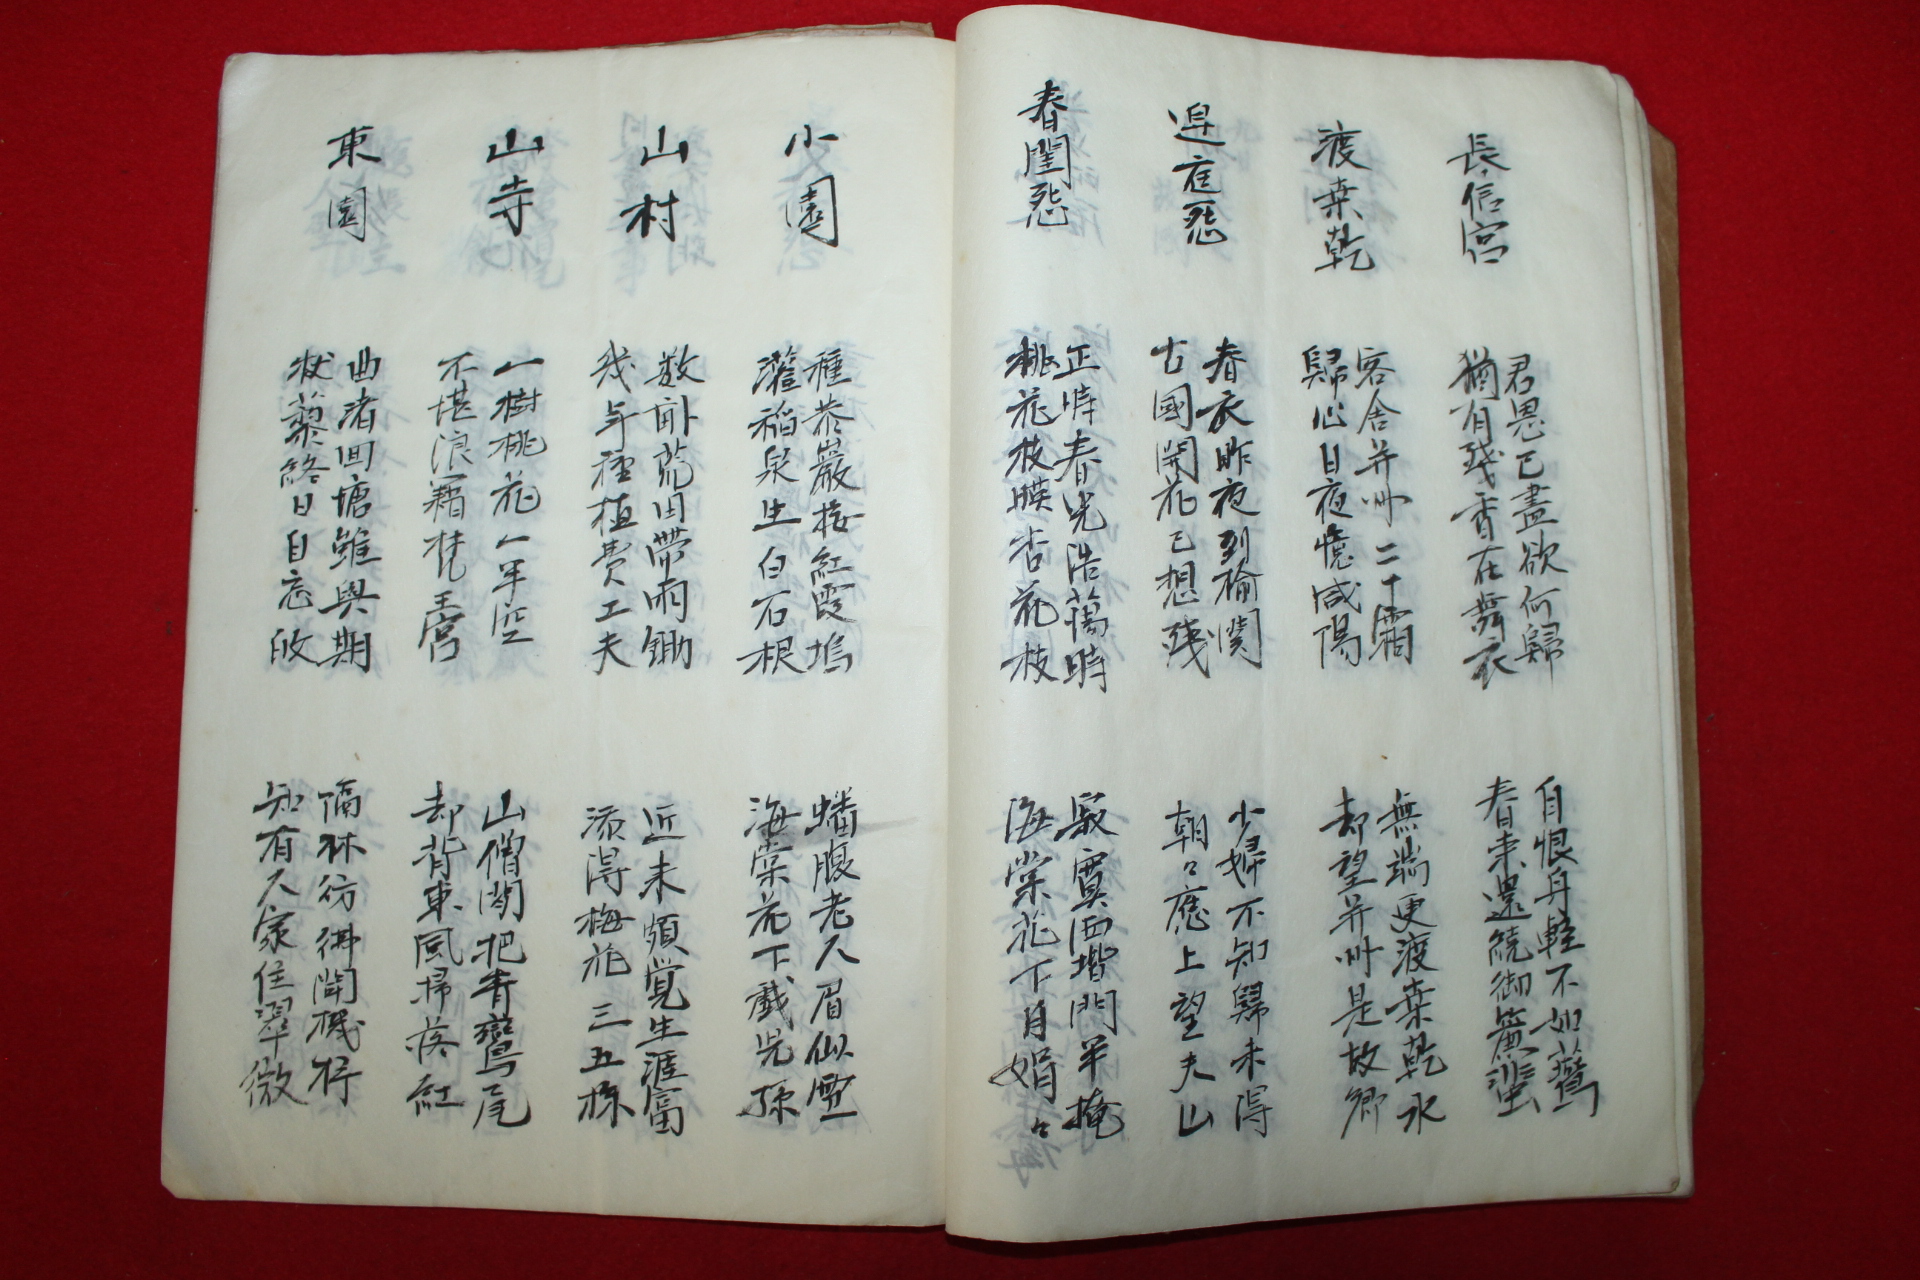 長信宮
君恩已盡欲何歸
猶有殘香在舞衣
自恨身輕不如鷰
春来還繞御簾蜚
渡桒乾
客舍并州二十霜
歸心日夜憶咸陽
無端更渡桒乾水
却望并州是故鄉
邉庭怨
春衣昨夜到楡関
古國開花已想殘
少婦不知歸未得
朝々應上望夫山
春閨怨
正時春光浩蕩時
桃花枝暎杏花枝
寂寞西堦門半掩
海棠花下月娟々
小園
種茶巖接紅霞塢
灌稻泉生白石根
蟠腹老人眉似雪
海棠花下戱兒孫
山村
数畝荒田帶雨鋤
幾年種植費工夫
近来頗覚生涯富
添得梅花三五株
山寺
一樹桃花一半空
不堪浪藉梵王宮
山僧閒把青鸞尾
却背東風掃落紅
東園
曲渚回塘雖與期
杖藜終日自忘皈
隔林彷彿聞機杼
知有人家住翠微